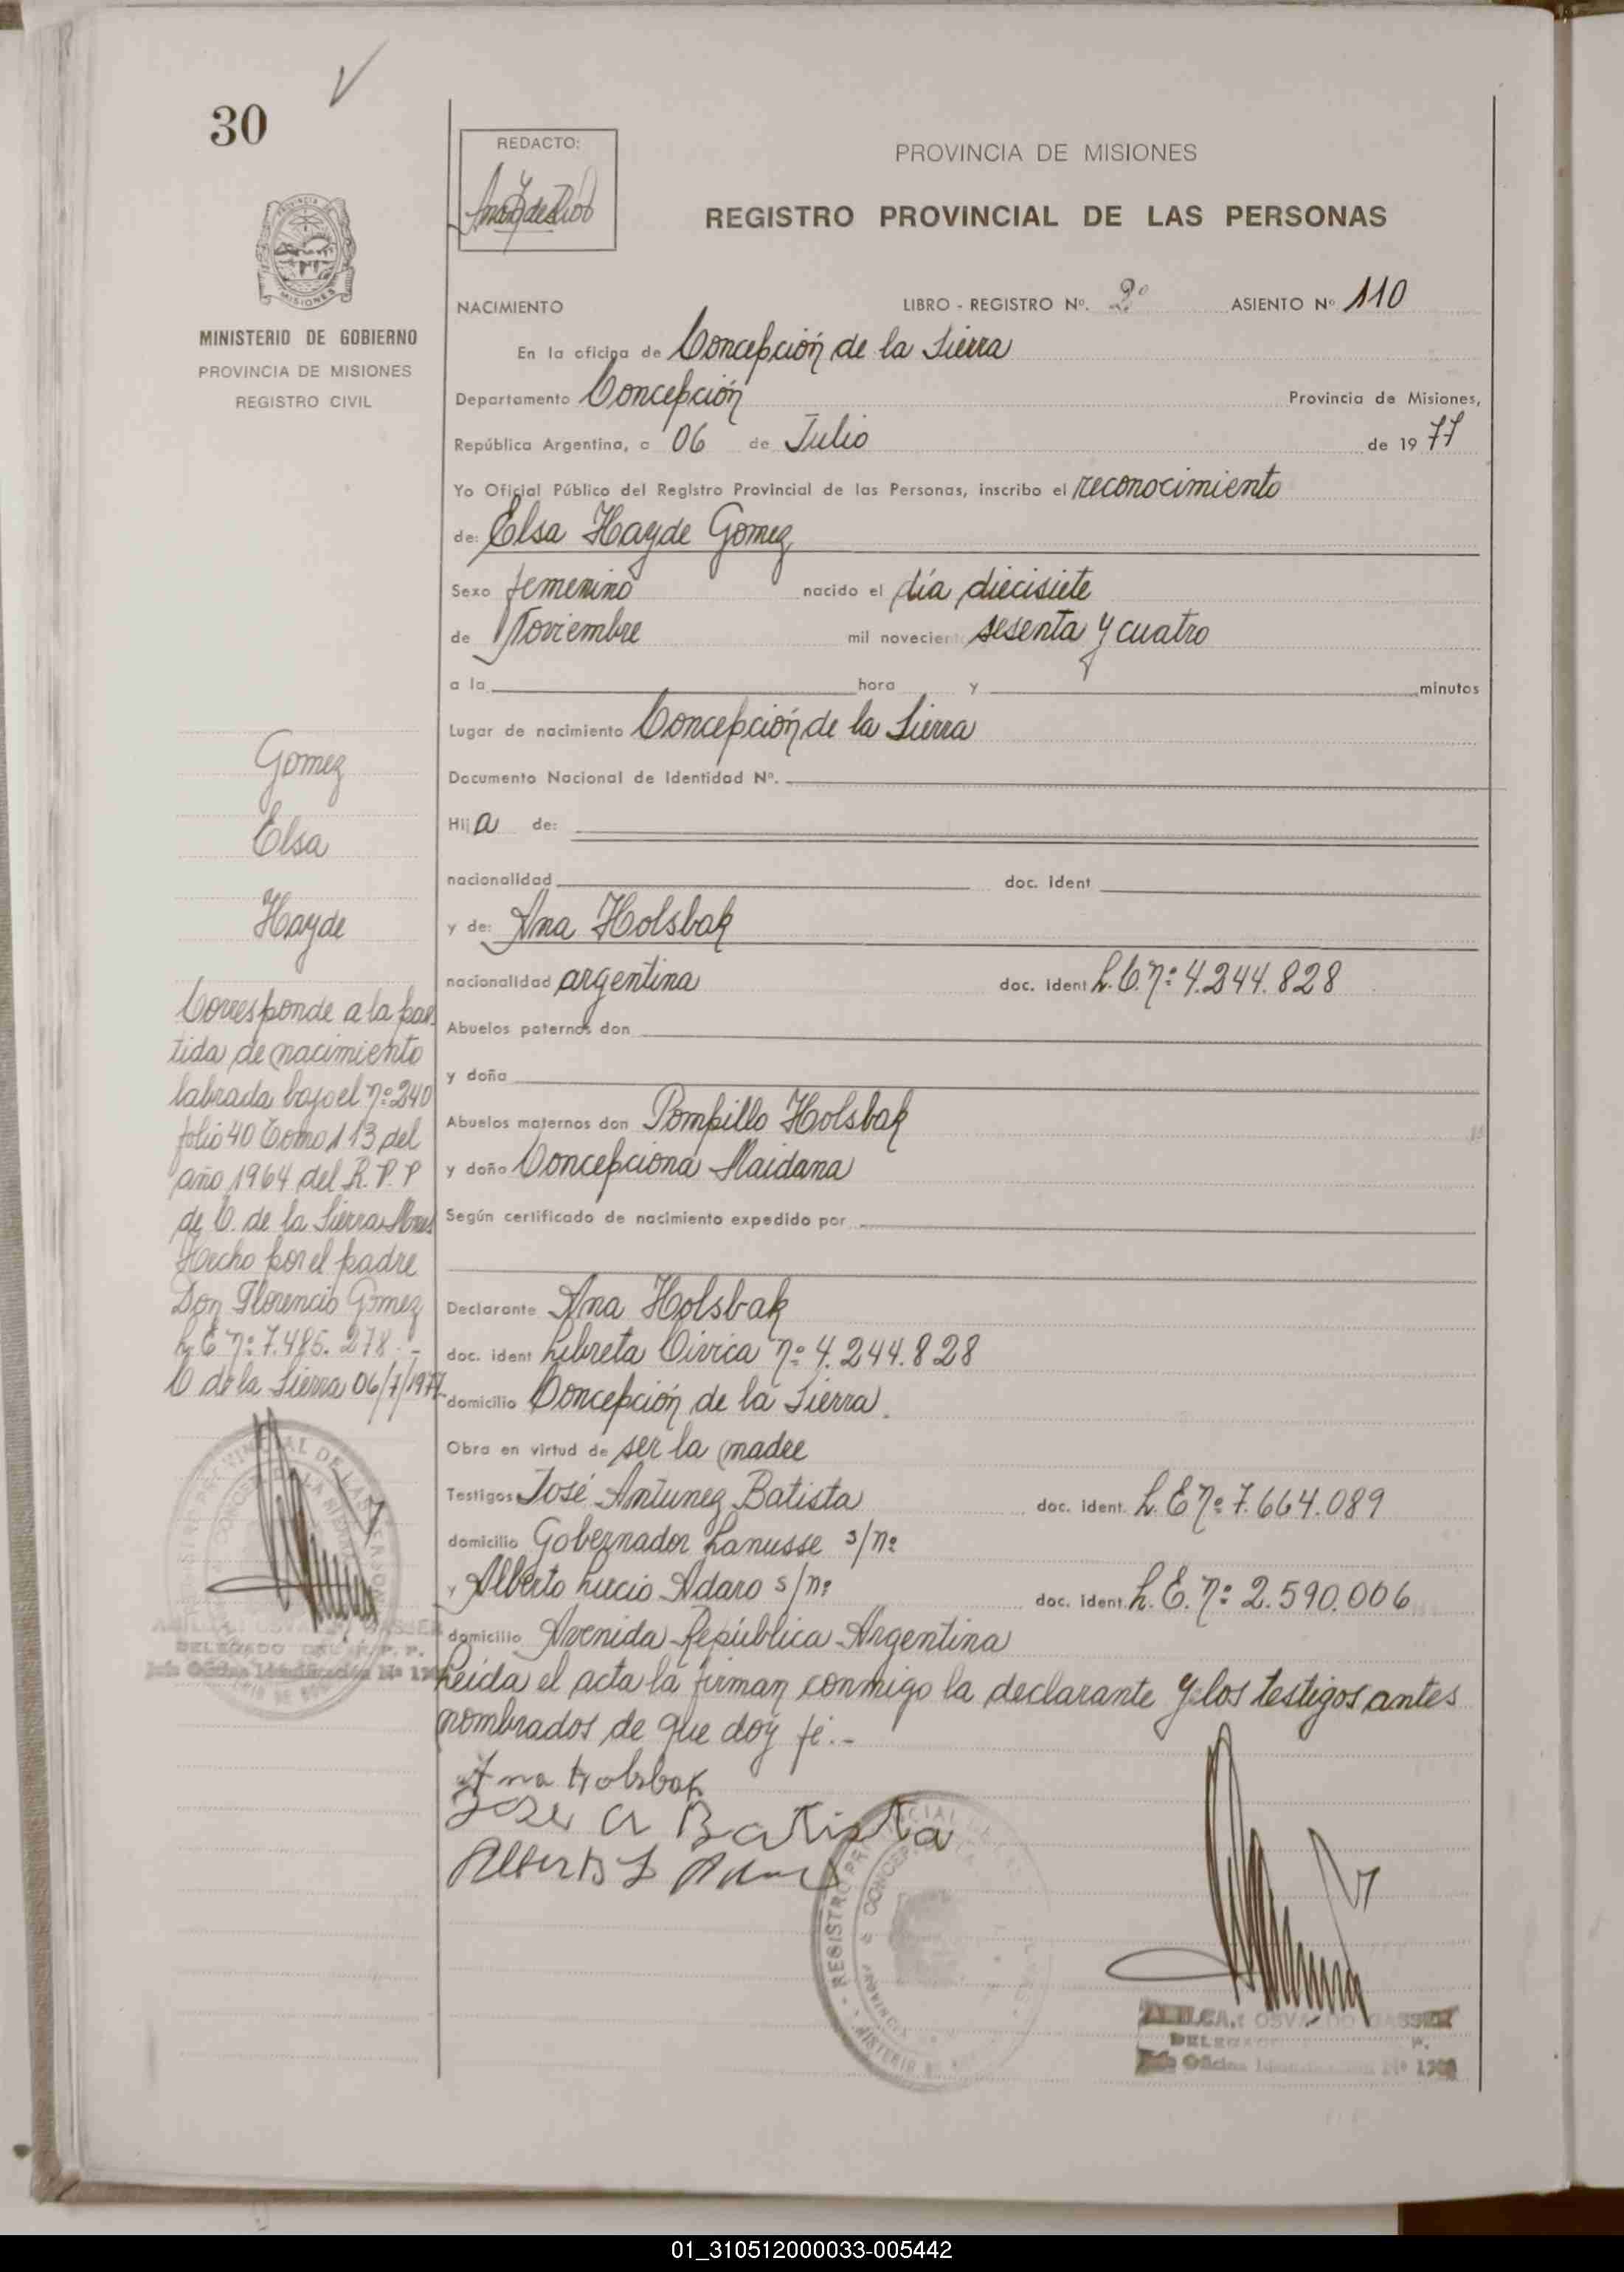 30
REDACTO:
PROVINCIA DE MISIONES
REGISTRO PROVINCIAL DE LAS PERSONAS
MISIONES
MINISTERIO DE GOBIERNO
PROVINCIA DE MISIONES
REGISTRO CIVIL
NACIMIENTO LIBRO - REGISTRO Nº. 2º ASIENTO Nº 110
En la oficina de Concepción de la Sierra
Departamento Concepción Provincia de Misiones,
República Argentina, a 06 de Julio de 19 77
Yo Oficial Público del Registro Provincial de las Personas, inscribo el reconocimiento
de: Elsa Hayde Gomez
Sexo femenino nacido el día diecisiete
de Noviembre mil novecientos sesenta y cuatro
a la hora y minutos
Lugar de nacimiento Concepción de la Sierra
Documento Nacional de Identidad Nº.
Hija de:
nacionalidad doc. ident
y de: Ana Holsbak
nacionalidad argentina doc. ident L.C. nº: 4.244.828
Abuelos paternos don
y doña
Abuelos maternos don Pompillo Holsbak
y doña Concepciona Maidana
Según certificado de nacimiento expedido por
Declarante Ana Holsbak
doc. ident Libreta Cívica nº 4.244.828
domicilio Concepción de la Sierra.
Obra en virtud de ser la madre
Testigos José Antunez Batista doc. ident. L.E nº 7.664.089
domicilio Gobernador Lanusse s/nº
y Alberto Lucio Adaro s/nº doc. ident. L.E. nº: 2.590.006
domicilio Avenida República Argentina
Leída el acta la firman conmigo la declarante y los testigos antes
nombrados de que doy fé.-
Ana Holsbak
Jose A Batista
Alberto L Adaro
Gomez
Elsa
Hayde
Corresponde a la par
tida de nacimiento
labrada bajo el nº 240
folio 40 Tomo 113 del
año 1964 del R.P.P
de C. de la Sierra Mnes
Hecho por el padre
Don Florencio Gomez
L.E nº: 7.485.278.-
C de la Sierra 06/7/1977.
OSVALDO GASSER
DELEGADO DEL R.P.P.
Jefe Oficina Identificación Nº
OSVALDO GASSER
Jefe Oficina Identificación Nº
01_310512000033-005442